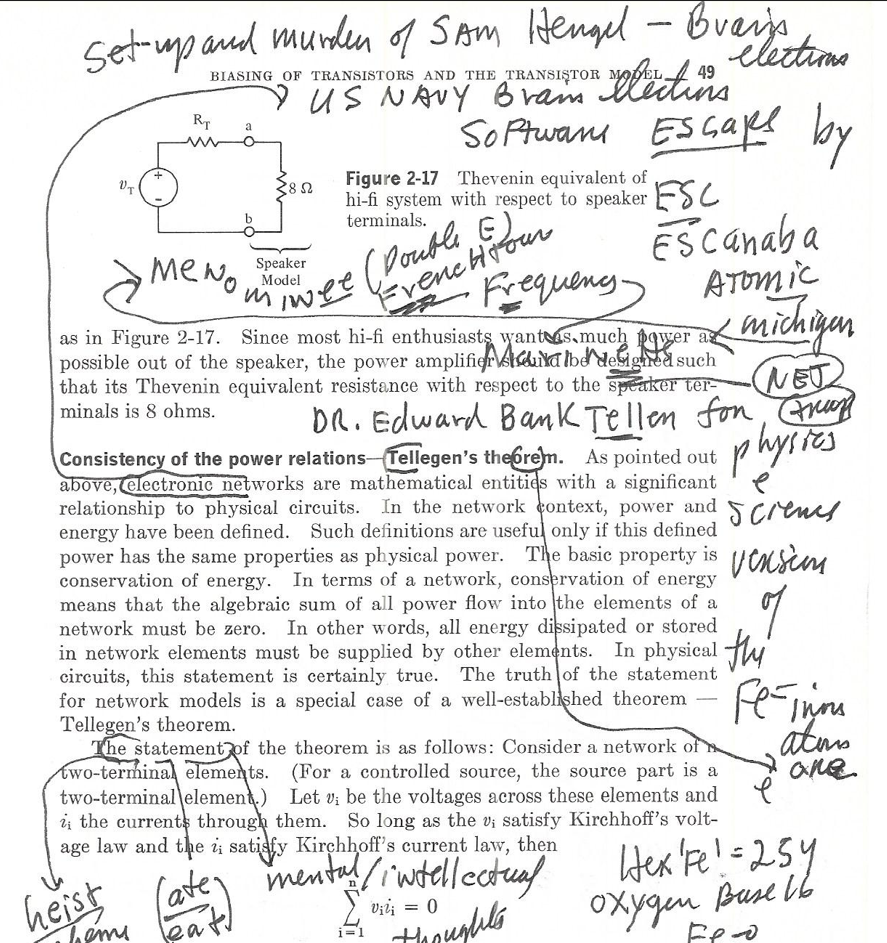 Set-up and murder of SAM Hengel – Brain
elections
BIASING OF TRANSISTORS AND THE TRANSISTOR MODEL 49
US NAVY Brain elections
Software ESCape by
R_T a
v_T + - 8 Ω
b
Speaker
Model
Figure 2-17 Thevenin equivalent of
hi-fi system with respect to speaker
terminals.
ESC
ESCanaba
ATOMIC
michigan
MENO
minee (Double E)
French four
Frequency
as in Figure 2-17. Since most hi-fi enthusiasts want as much power as
possible out of the speaker, the power amplifier should be designed such
that its Thevenin equivalent resistance with respect to the speaker ter-
minals is 8 ohms.
Marinette
NET
DR. Edward Bank Teller for
physics
e
science
version
of
the
Fe=iron
atom
one
e
Consistency of the power relations—Tellegen's theorem. As pointed out
above, electronic networks are mathematical entities with a significant
relationship to physical circuits. In the network context, power and
energy have been defined. Such definitions are useful only if this defined
power has the same properties as physical power. The basic property is
conservation of energy. In terms of a network, conservation of energy
means that the algebraic sum of all power flow into the elements of a
network must be zero. In other words, all energy dissipated or stored
in network elements must be supplied by other elements. In physical
circuits, this statement is certainly true. The truth of the statement
for network models is a special case of a well-established theorem —
Tellegen's theorem.
The statement of the theorem is as follows: Consider a network of n
two-terminal elements. (For a controlled source, the source part is a
two-terminal element.) Let vᵢ be the voltages across these elements and
iᵢ the currents through them. So long as the vᵢ satisfy Kirchhoff's volt-
age law and the iᵢ satisfy Kirchhoff's current law, then
heist
(ate
eat)
mental/intellectual
thoughts
n
∑ vᵢiᵢ = 0
i=1
Hex 'Fe' = 254
OXygen Base 16